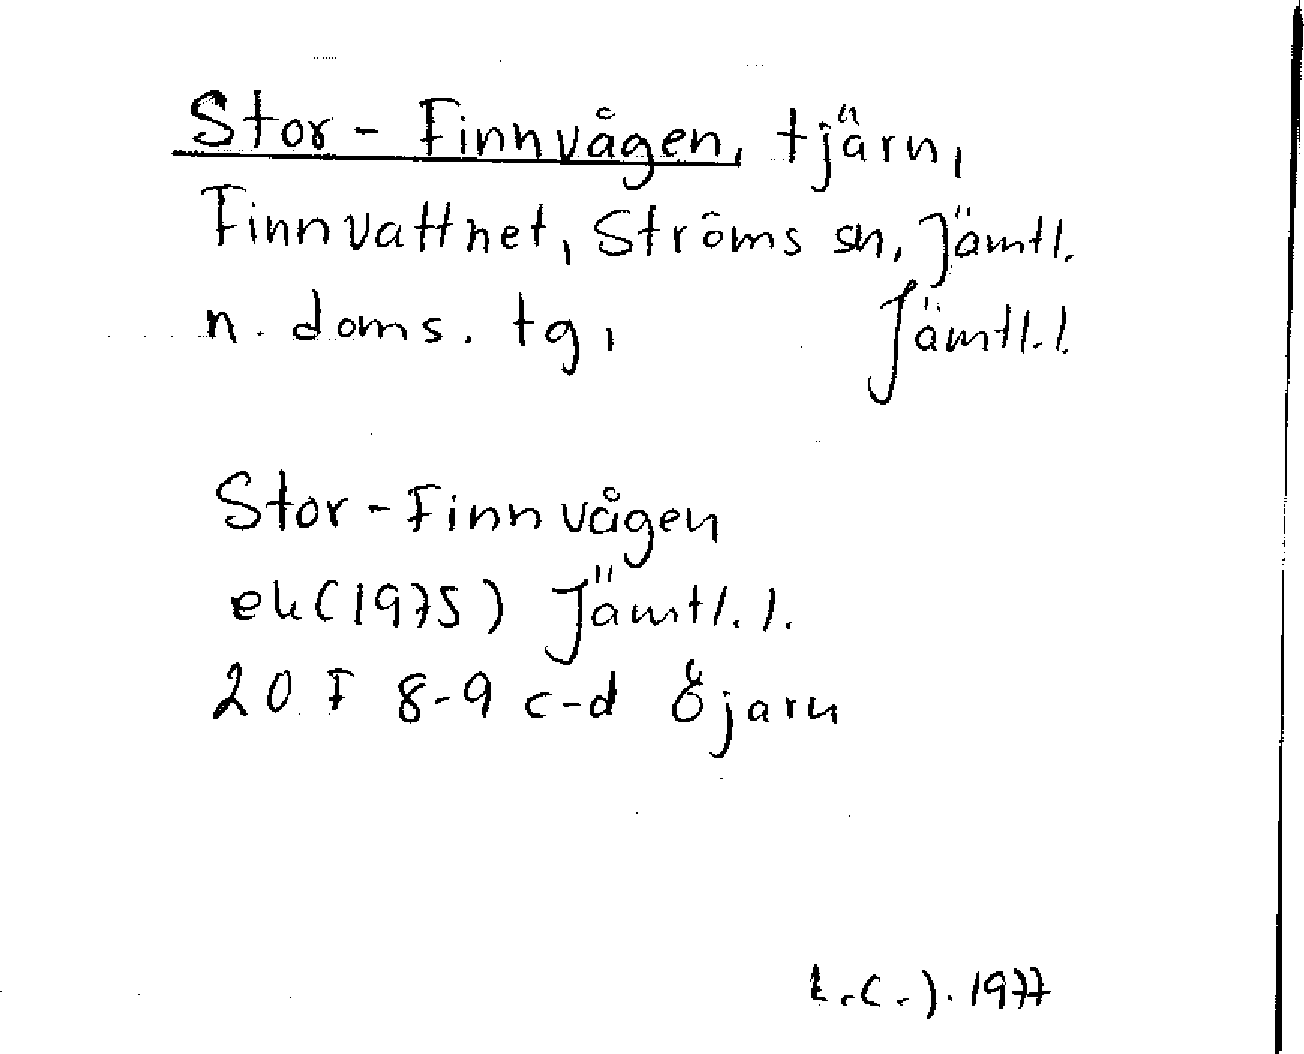 Stor-Finnvågen, tjärn,
Finnvattnet, Ströms sn, Jämtl.
n. doms. tg, Jämtl.l.
Stor-Finnvågen
ek (1975) Jämtl.l.
20 F 8-9 c-d Öjarn
1977